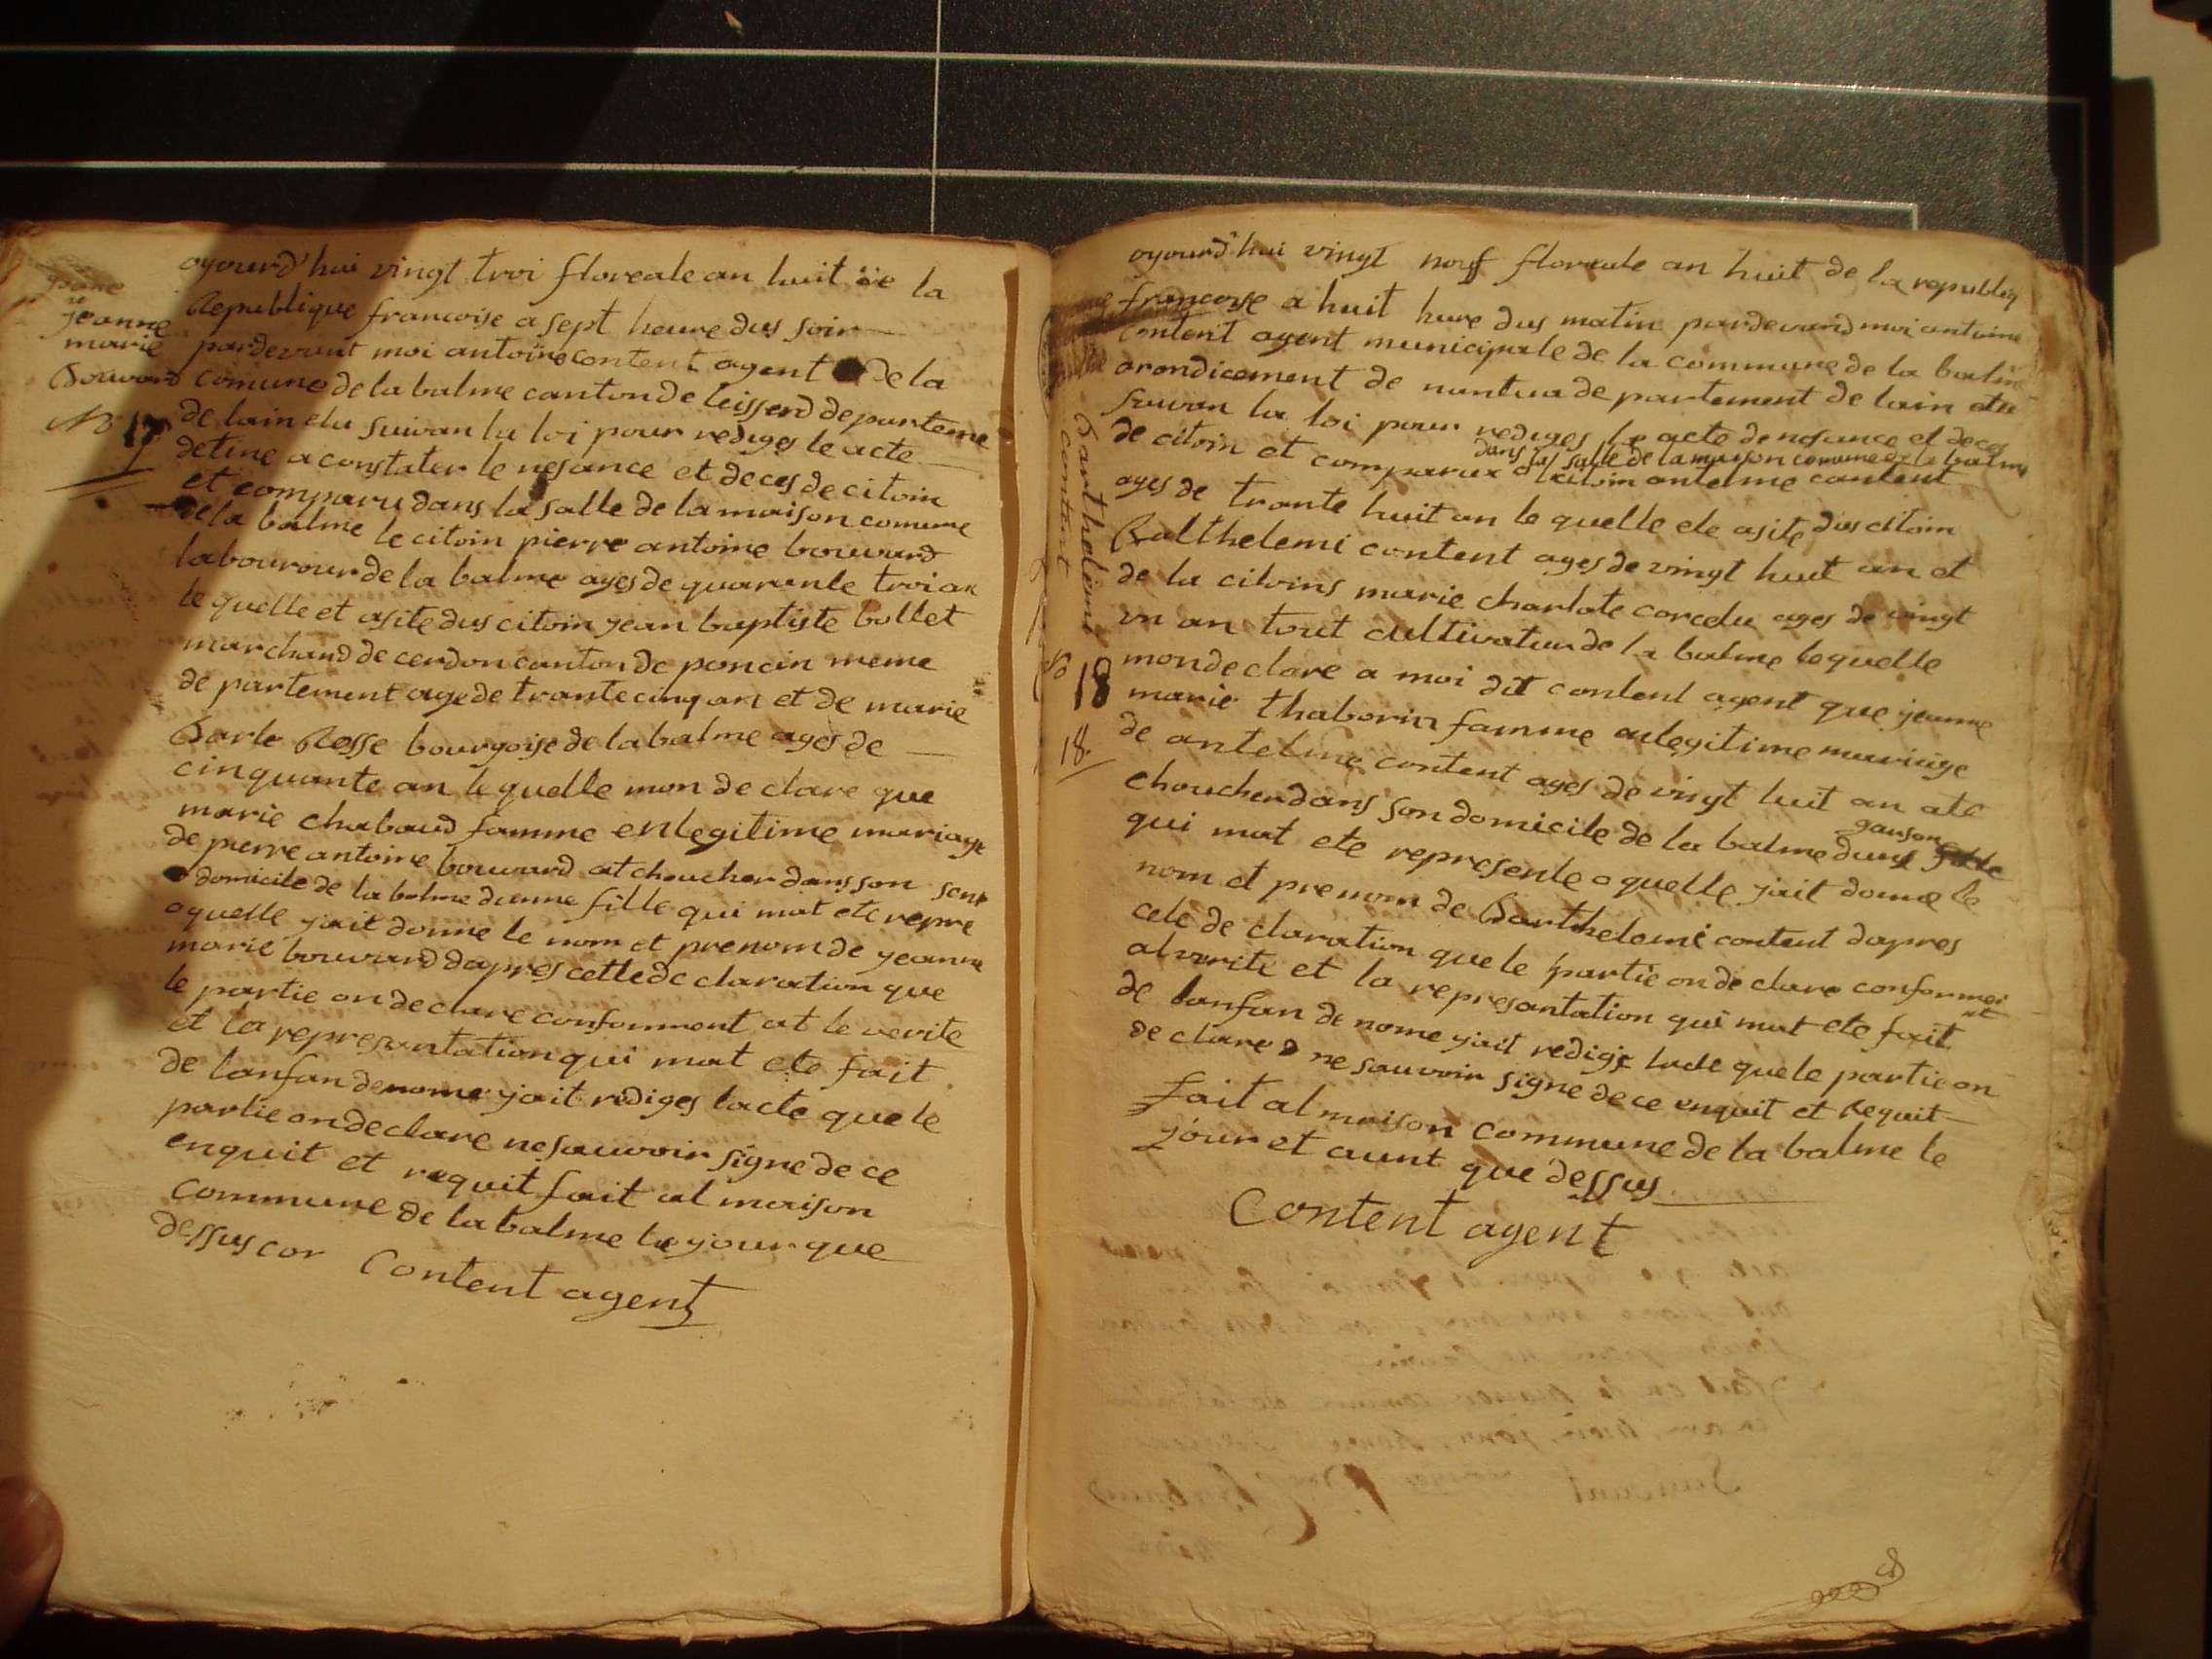 jeanne
marie
Bouvard
No 17
oyourd'hui vingt troi floreale an huit de la
Republique francoise a sept heure dus soir
pardevant moi antoine content agent de la
comune de la balme canton de leissard departeme
de lain elu suivan la loi pour rediges le acte
detine a constater le nesance et deces de citoin
et comparu dans la salle de la maison comune
de la balme le citoin pierre antoine bouvard
labourour de la balme ages de quarante troi an
le quelle et asite dus citoin yean baptiste bollet
marchand de cerdon canton de poncin meme
de partement age de trante cinq an et de marie
Barbe Rosse bourgoise de la balme ages de
cinquante an le quelle mon de clare que
marie chabaud famme en legitime mariage
de pierre antoine bouvard at choucher dans son
domicile de la balme dunne fille qui mat ete repre sent
a quelle yait donne le nom et prenom de yeanne
marie bouvard dapres cette de claration que
le partie on de clare conforment at le verite
et la represantation qui mat ete fait
de lanfan denome yait rediges lacte que le
partie on declare ne sauvoir signe de ce
enquit et requit fait al maison
commune de la balme le your que
dessus cor Content agent
Barthelemi
content
No 18
18
oyourd'hui vingt nouf floreale an huit de la republiq
francoise a huit hure dus matin pardevand moi antoine
content agent municipale de la commune de la balme
arondicement de nantua de partement de lain elu
suivan la loi pour rediges le acte de nesance et deces
de citoin et comparux dans la salle de la maison comune de la balme
le citoin antelme content
ages de trante huit an le quelle ete asite dus citoin
Balthelemi content ages de vingt huit an et
de la citoins marie charlote corcelu ages de vingt
un an tout cultivateur de la balme le quelle
mon declare a moi dit content agent que jeanne
marie thaborin famme en legitime mariage
de antelme content ages de vingt huit an ate
choucher dans son domicile de la balme dung garson
qui mat ete represente a quelle yait donne le
nom et prenom de Barthelemi content dapres
cete de claration que le partie on de clare conformement
al verite et la represantation qui mat ete fait
de lanfan de nome yait redige lacte que le partie on
de clare ne sauvoir signe de ce enquit et Requit
fait al maison commune de la balme le
jour et aunt que dessus
Content agent